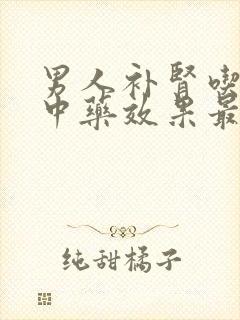 男人补肾喫
中药效果最
纯甜橘子